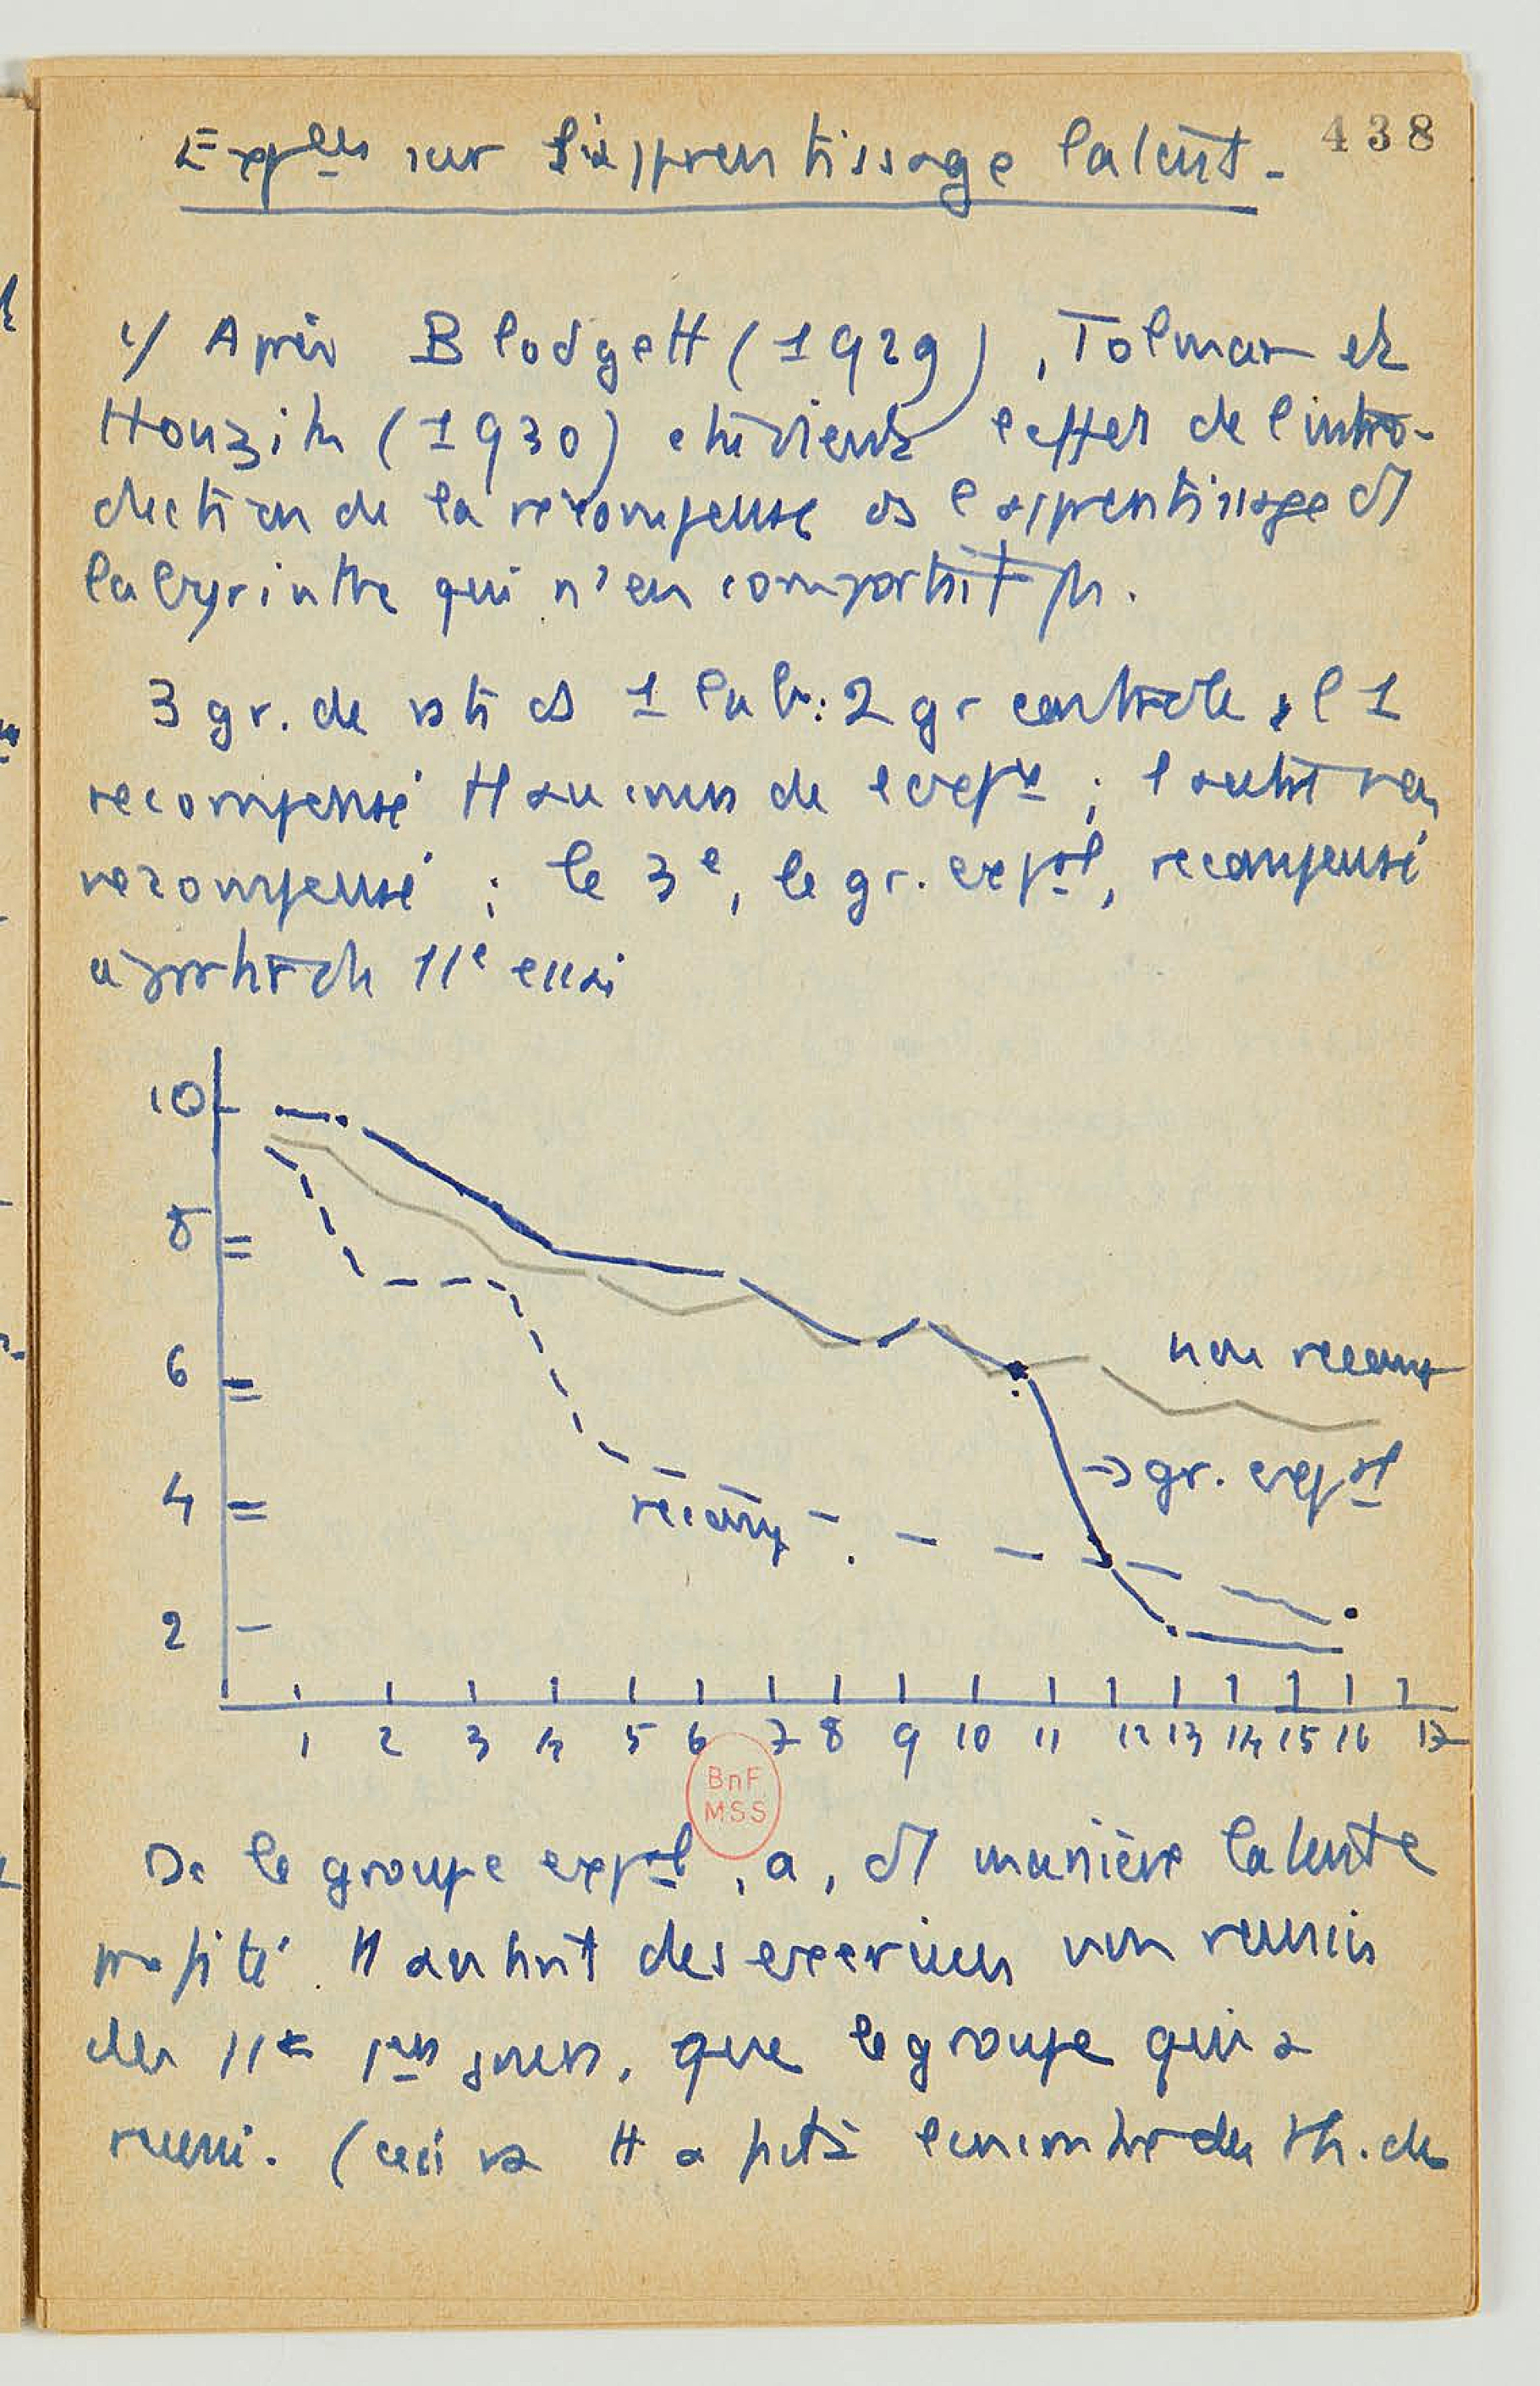 438
Expces sur l'apprentissage latent.
1/ Après Blodgett (1929), Tolman et
Honzik (1930) étudient l'effet de l'intro-
duction de la récompense ds l'apprentissage d'1
labyrinthe qui n'en comportait pas.
3 gr. de rats ds 1 lab: 2 gr contrôle, l'1
récompensé tt au cours de l'expce ; l'autre non
récompensé ; le 3e, le gr. exptal, récompensé
à partir du 11e essai
10
8
6
4
2
non récomp
→ gr. exptal
récomp
1 2 3 4 5 6 7 8 9 10 11 12 13 14 15 16 17
BnF
MSS
Dc le groupe exptal, a, d'1 manière latente
profité tt autant des exercices non
des 11 1ers jours, que le groupe qui a
(ceci va tt à fait à l'encontre des th. de